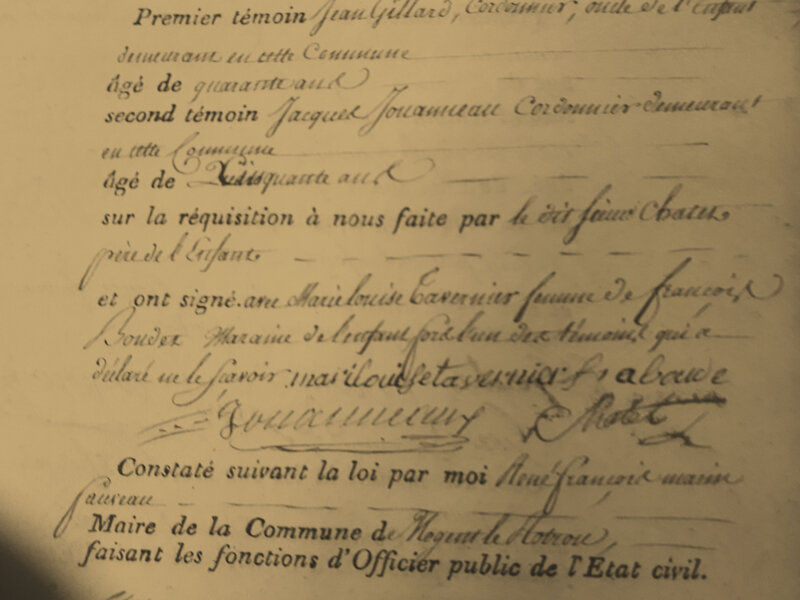 Premier témoin Jean Gillard, Cordonnier, oncle de l'Enfant
demeurant en cette Commune
âgé de quarante ans
second témoin Jacques Jouanneau Cordonnier demeurant
en cette Commune
âgé de Cinquante ans
sur la réquisition à nous faite par le dit sieur
père de l'Enfant
et ont signé avec Marie louise tavernier femme de françois
Maraine de l'enfant fors l'un des témoins qui a
déclaré ne le scavoir. marilouisetavernier
Jouanneau
Constaté suivant la loi par moi René françois marin
Maire de la Commune de Nogent le Rotrou,
faisant les fonctions d'Officier public de l'Etat civil.